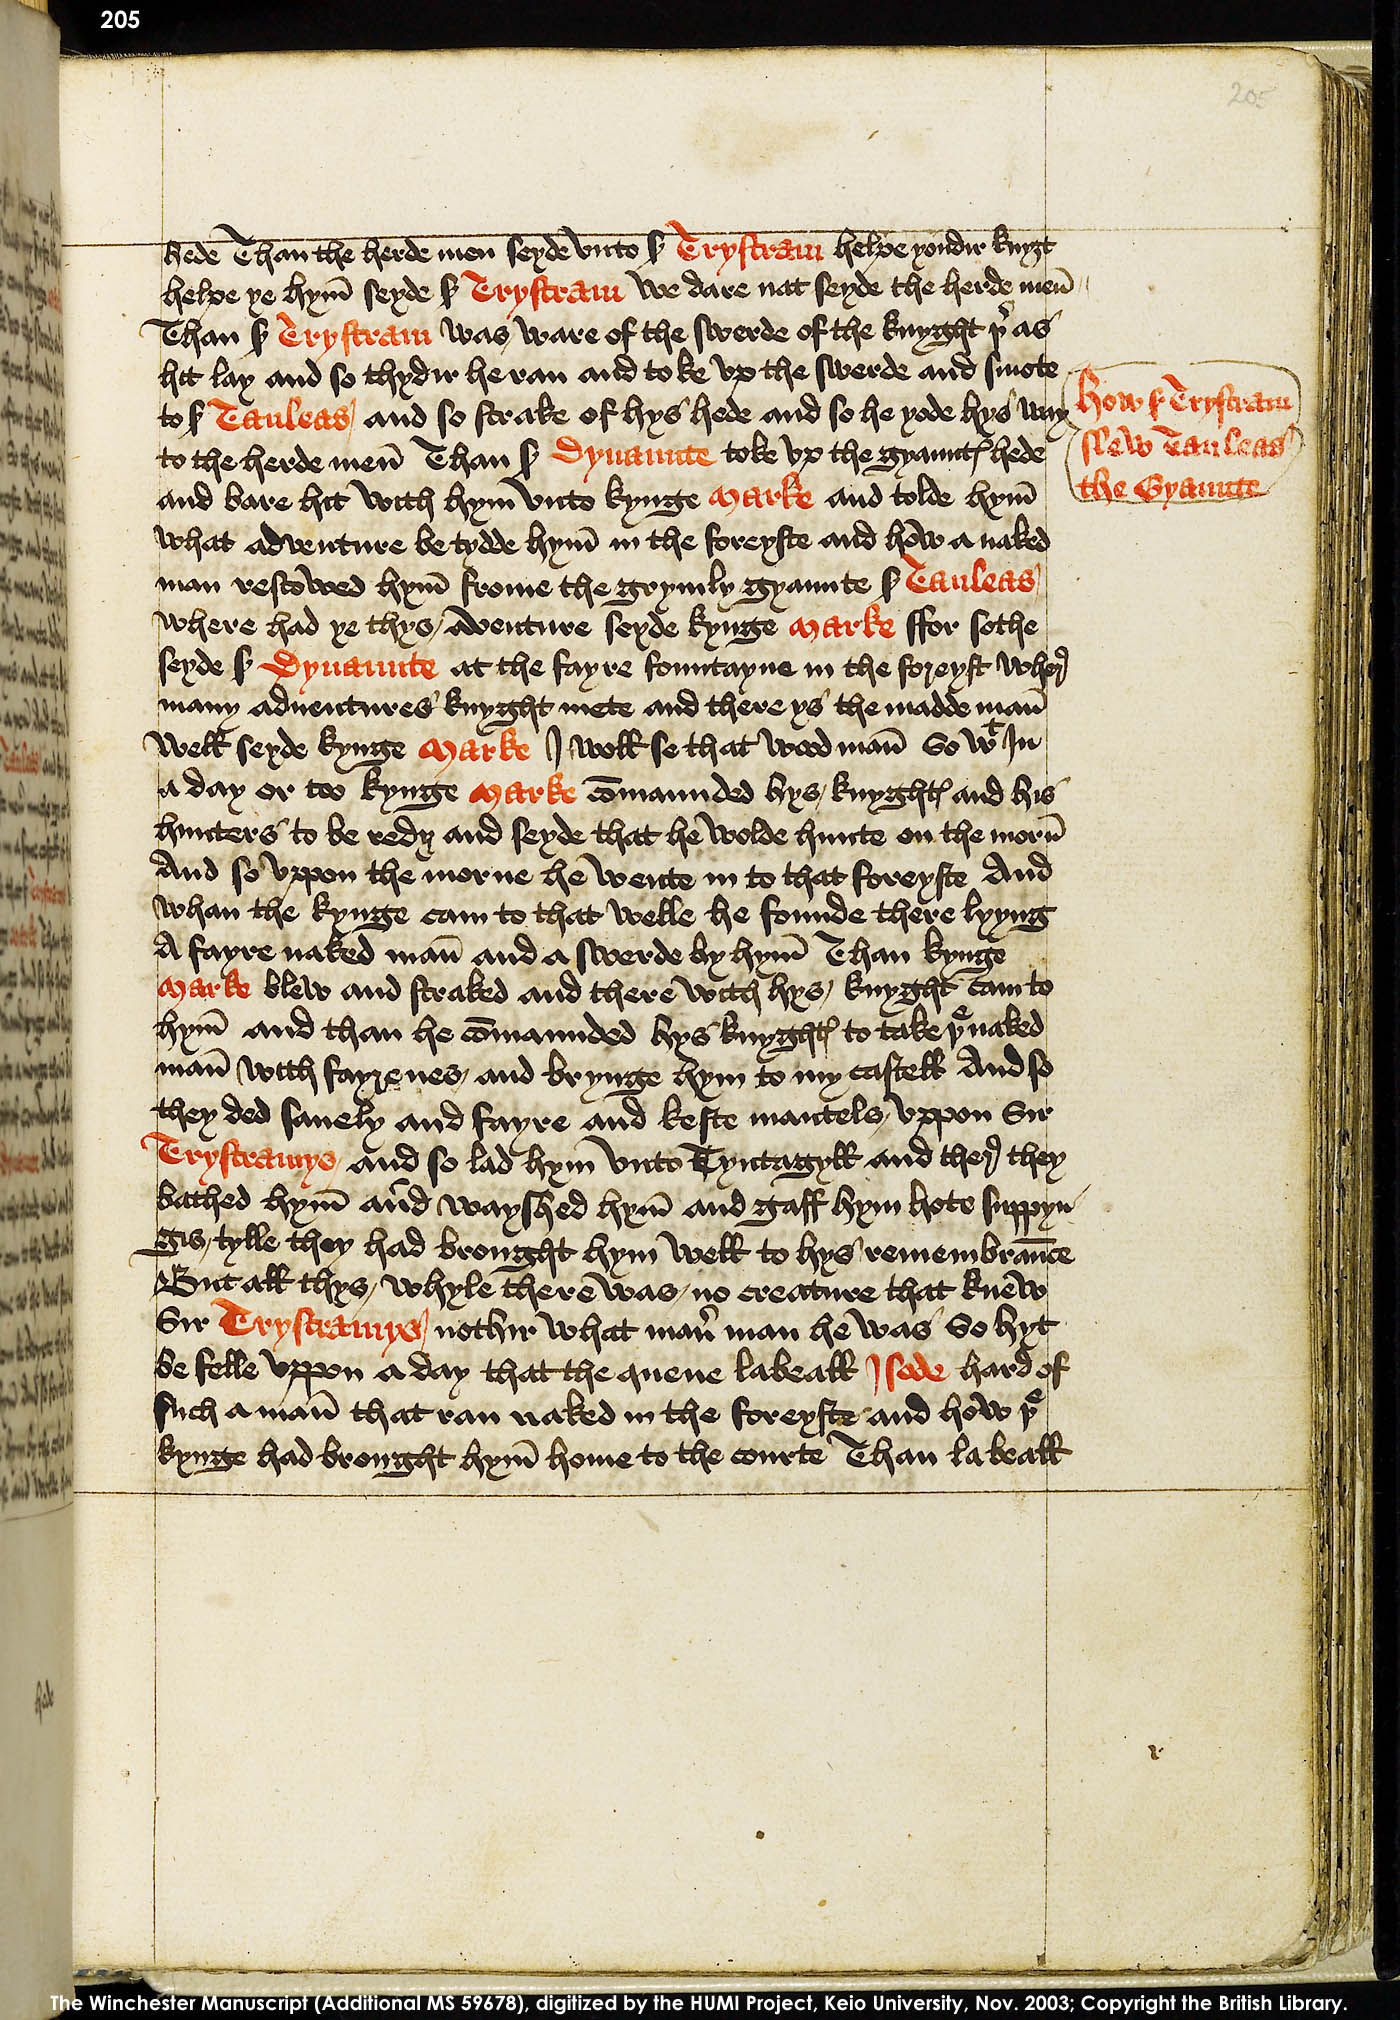 205
205
hede Than the herde men seyde vnto sʳ Trystram helpe yondir knyȝt
helpe ye hym̄ seyde sʳ Trystram we dare nat seyde the herde men̄
Than sʳ Trystram was ware of the swerde of the knyght þʳ as
hit lay and so thydir he ran and toke vp the swerde and smote
to sʳ Tauleas and so strake of hys hede and so he yode hys way
to the herde men̄ Than sʳ Dynaunte toke vp the gyauntꝭ hede
and bare hit with hym vnto kynge Marke and tolde hym̄
what adventure be tydde hym̄ in the foreyste and how a naked
man rescowed hym̄ frome the grymly gyaunte sʳ Tauleas
where had ye thys aventure seyde kynge Marke ffor sothe
seyde sʳ Dynaunte at the fayre fountayne in the foreyst wherꝭ
many aduentures knyght mete and there ys the madde man̄
well seyde kynge Marke I woll se that wood man̄ So wᵗ In
a day or too kynge Marke cōmaunded hys knyghtꝭ and his
hunters to be redy and seyde that he wolde hunte on the morn̄
And so vppon the morne he wente in to that foreyste And
whan the kynge cam to that welle he founde there lyyng
A fayre naked man̄ and a swerde by hym̄ Than kynge
Marke blew and straked and there with hys knyght cam to
hym̄ and than he cōmaunded hys knyghtꝭ to take þᵉ naked
man̄ with fayrenes and brynge hym to my castell And so
they ded sauely and fayre and keste mantels vppon Sir
Trystramys and so lad hym vnto Tyntagyll and therꝭ they
bathed hym̄ and wayshed hym̄ and gaff hym hote suppyn
gis tylle they had brought hym well to hys remembraunce
But all thys whyle there was no creature that knew
Sir Trystramys nothir what manʳ man he was So hyt
be felle vppon a day that the quene labeall Isode hard of
such a man̄ that ran naked in the foreyste and how þᵉ
kynge had brought hym̄ home to the courte Than la beall
How sʳ Trystram
slew Tauleas
the Gyaunte
The Winchester Manuscript (Additional MS 59678), digitized by the HUMI Project, Keio University, Nov. 2003; Copyright the British Library.